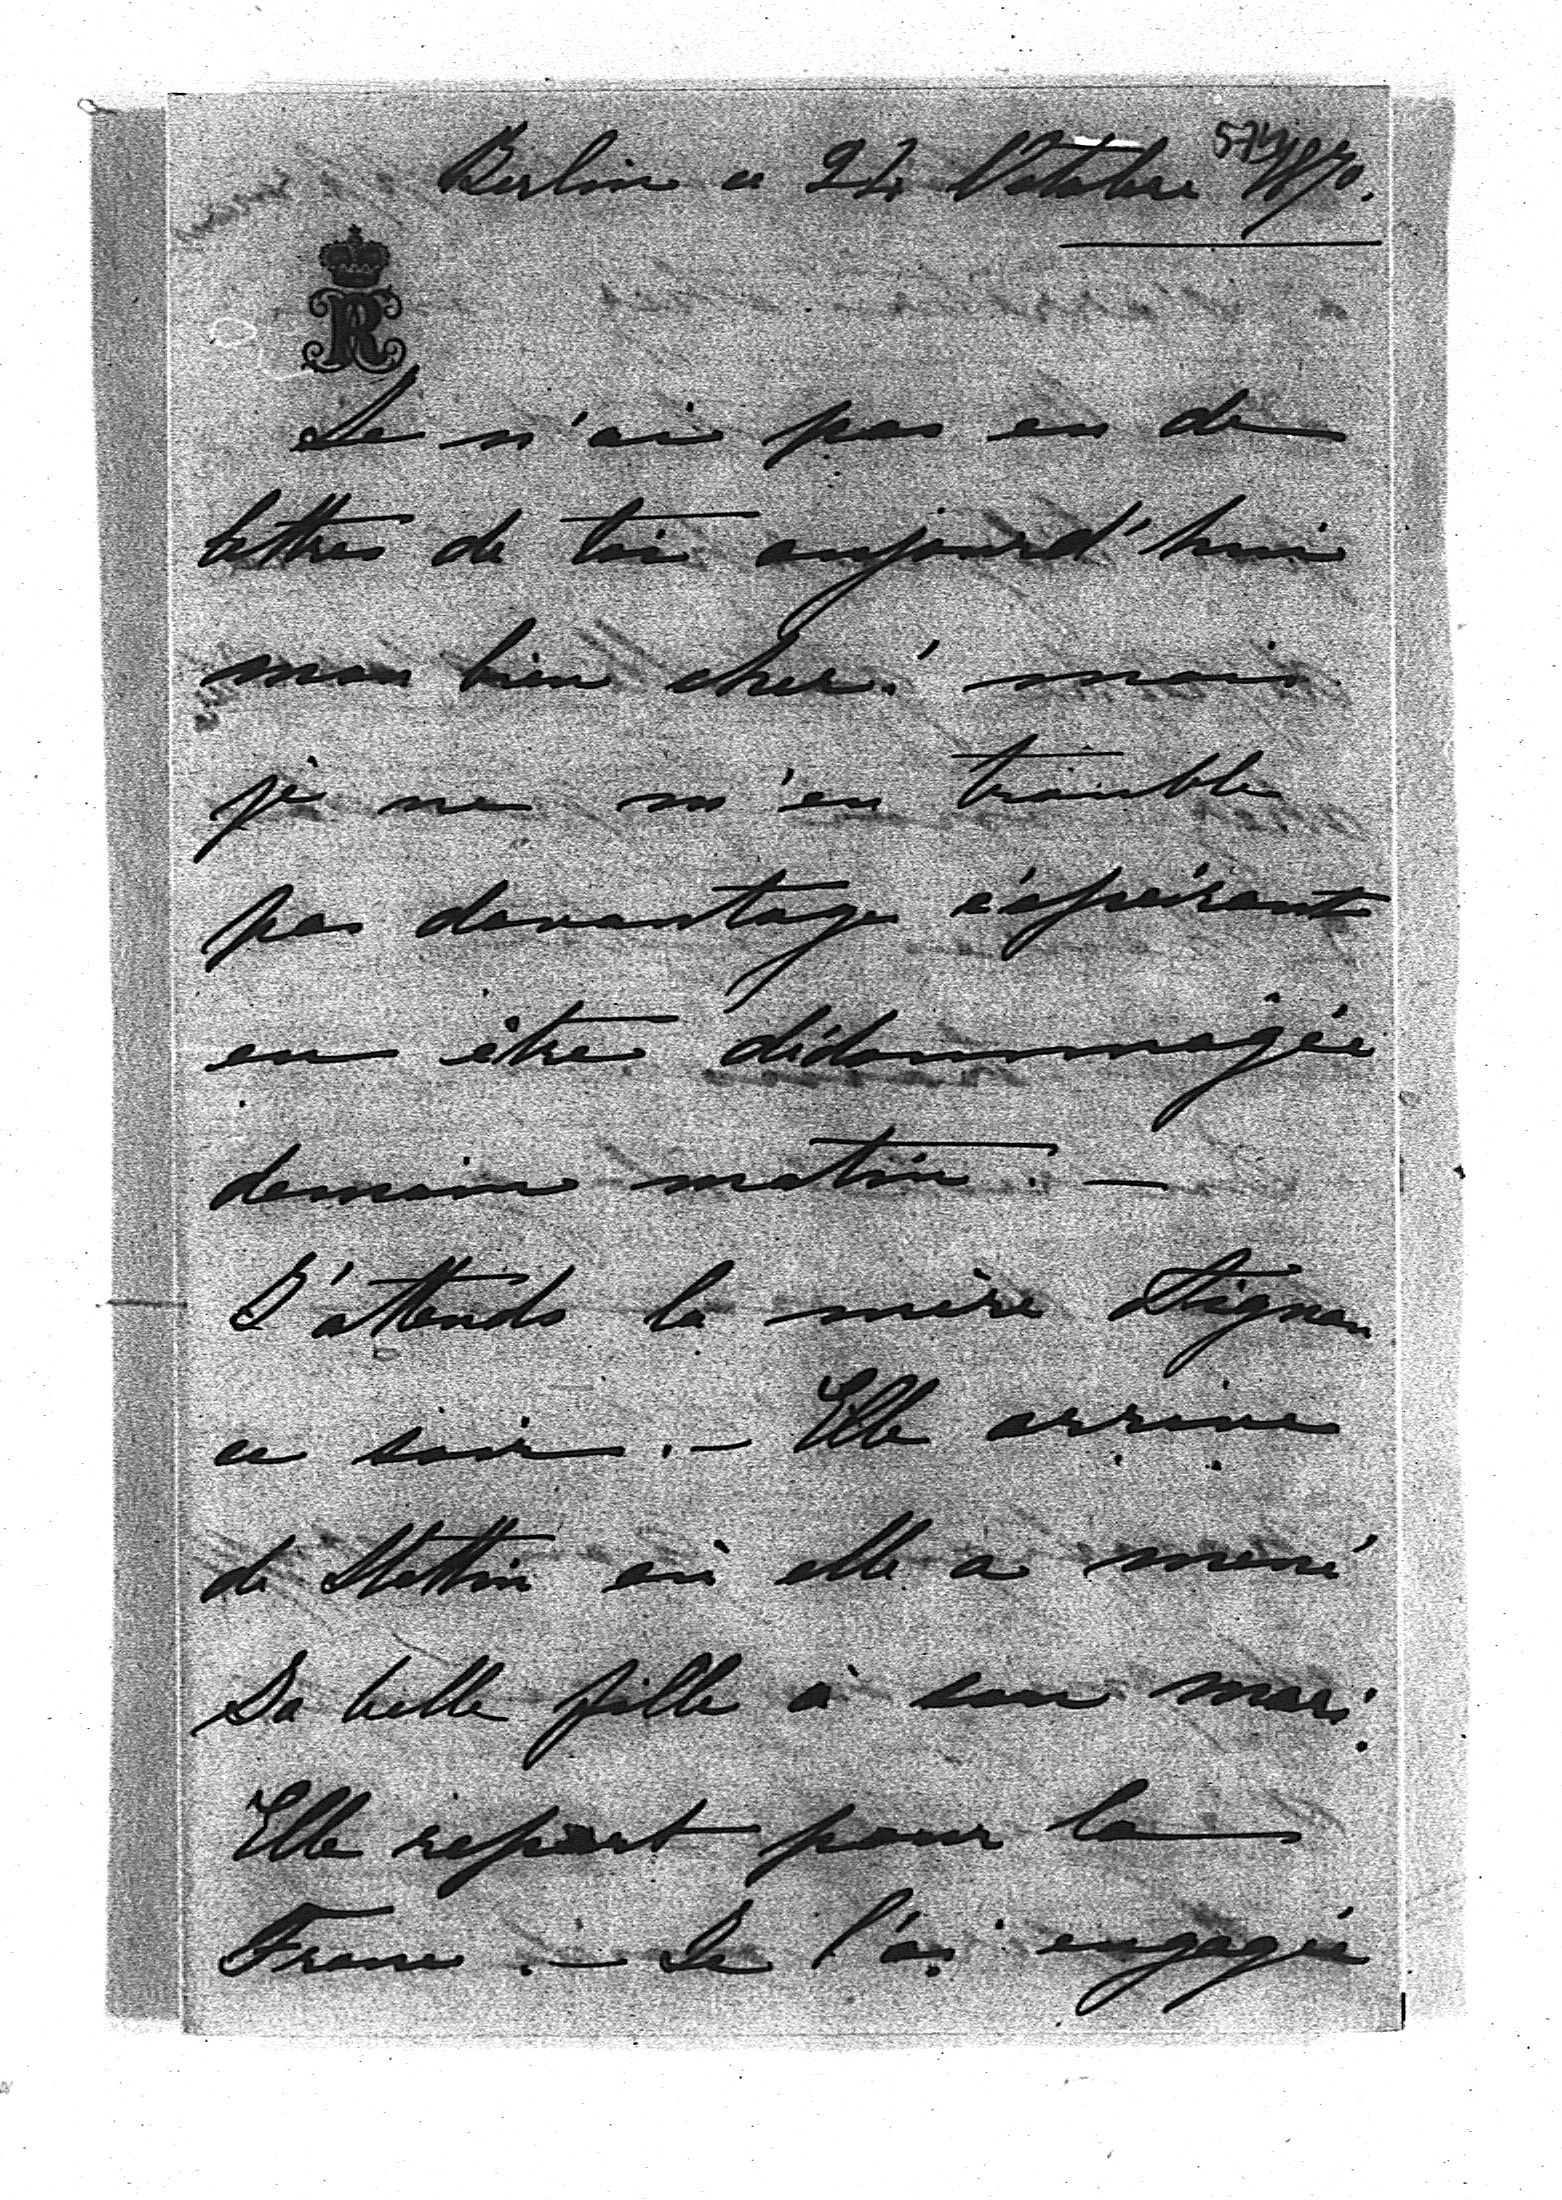 Berlin ce 24 Octobre 1870.
R
Je n'ai pas eu de
lettres de toi aujourd'hui
mon bien cher! mais
je ne m'en trouble
pas davantage éspérant
en être dédommagée
demain matin. —
J'attends la mère
ce soir. — Elle arrive
de Stettin où elle a mené
sa belle fille à son mari.
Elle repart pour la
France. — Je l'ai engagée